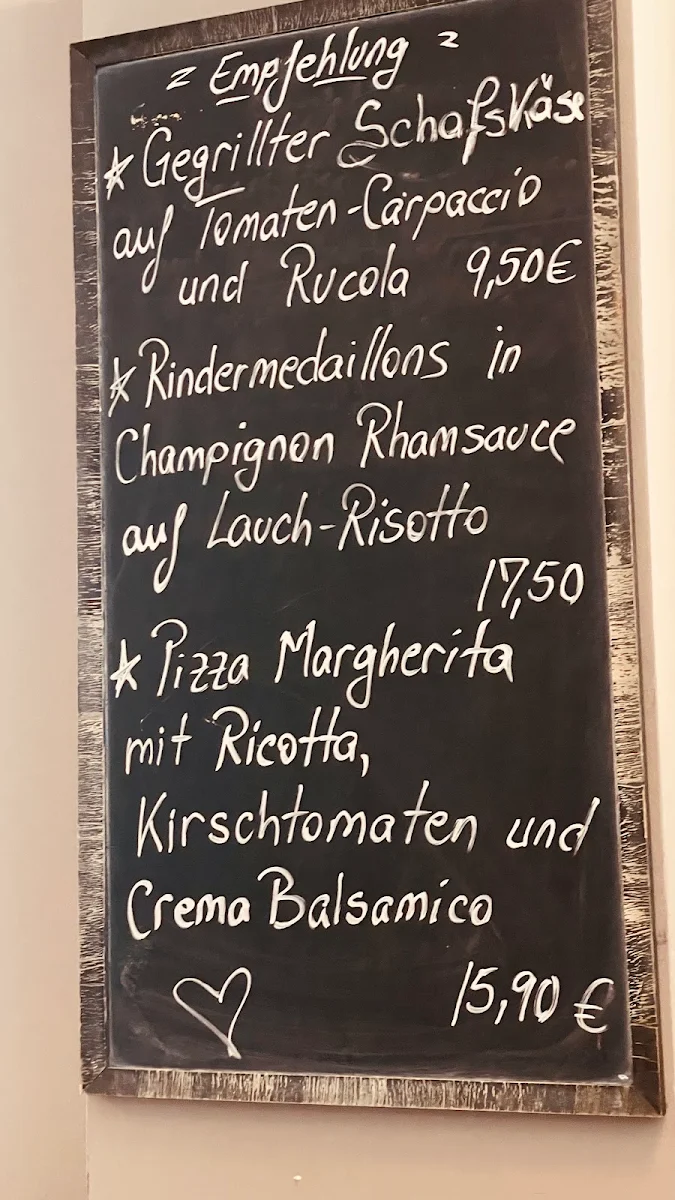 Empfehlung
Gegrillter Schafskäse
auf Tomaten-Carpaccio
und Rucola 9,50€
Rindermedaillons in
Champignon Rhamsauce
auf Lauch-Risotto
17,50
Pizza Margherita
mit Ricotta,
Kirschtomaten und
Crema Balsamico
15,90 €